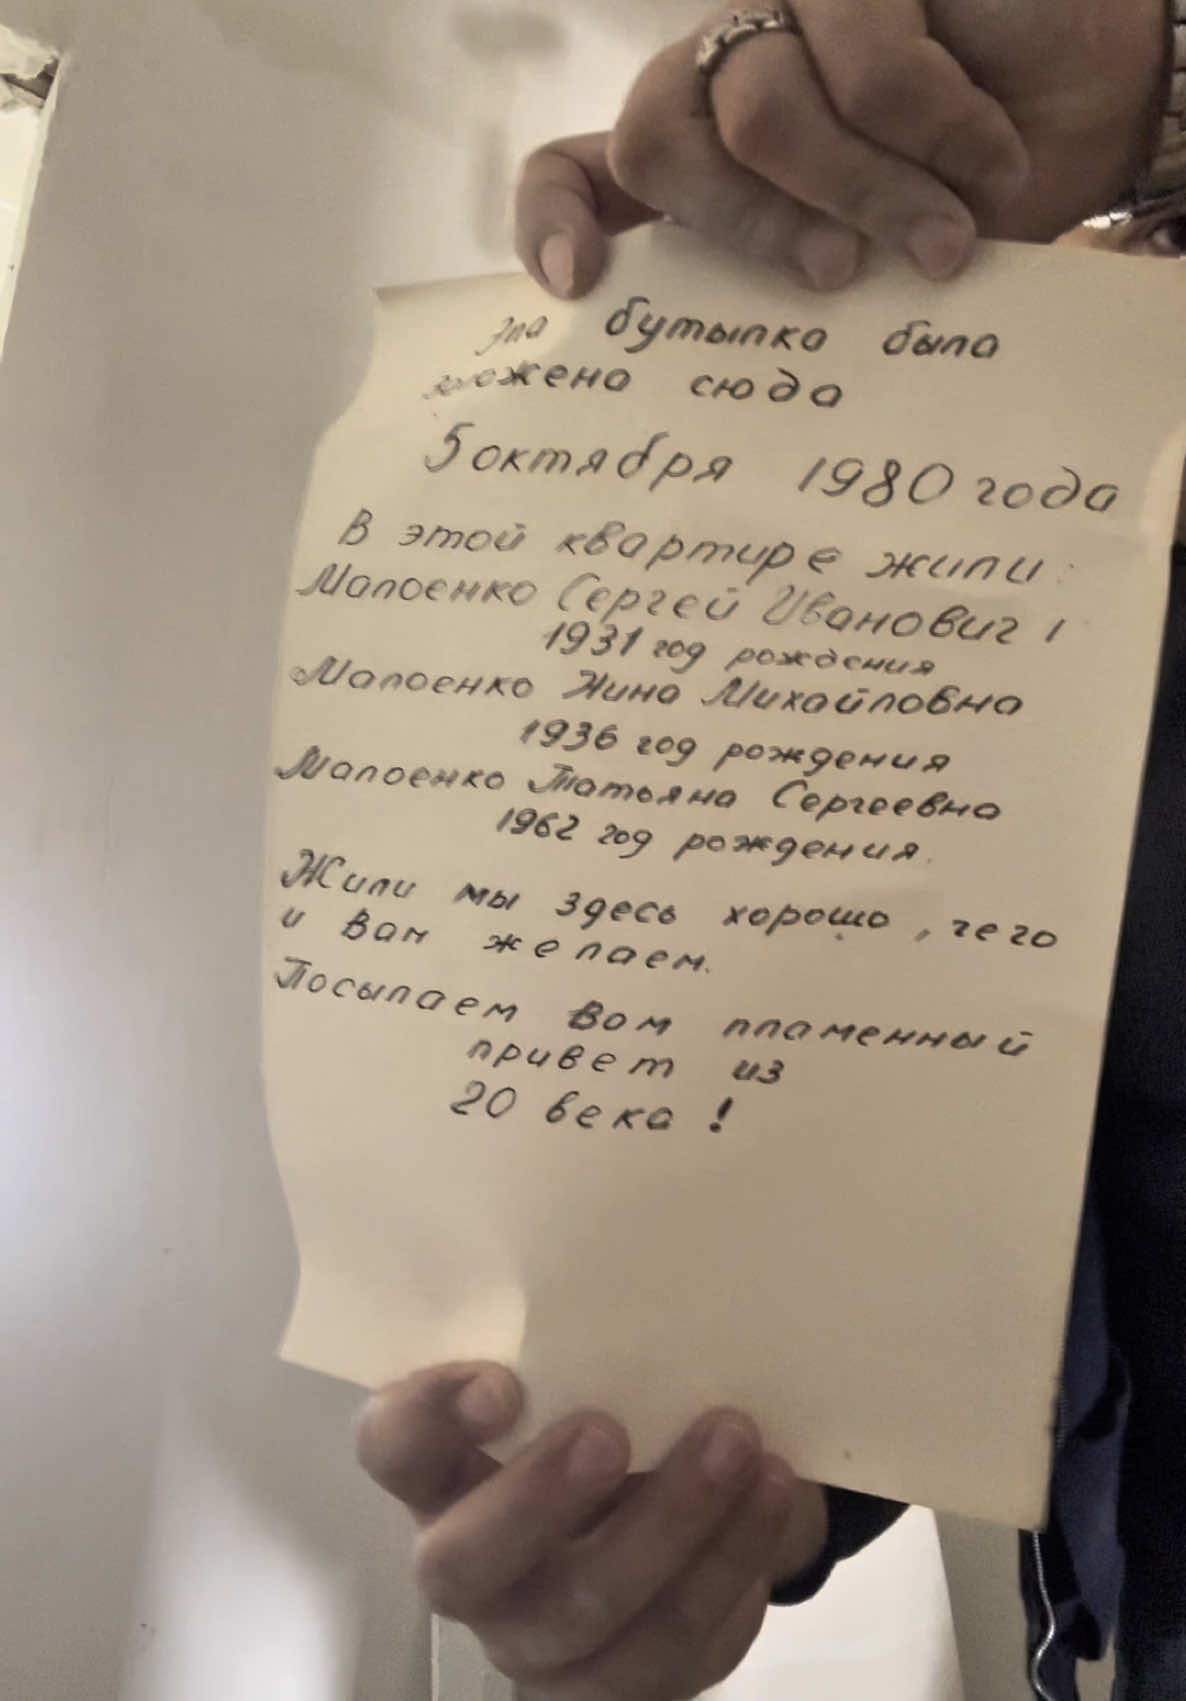 Эта бутылка была
заложена сюда
5 октября 1980 года
В этой квартире жили:
Малоенко Сергей Иванович
1931 год рождения
Малоенко Нина Михайловна
1936 год рождения
Малоенко Татьяна Сергеевна
1962 год рождения.
Жили мы здесь хорошо, чего
и Вам желаем.
Посылаем Вам пламенный
привет из
20 века!